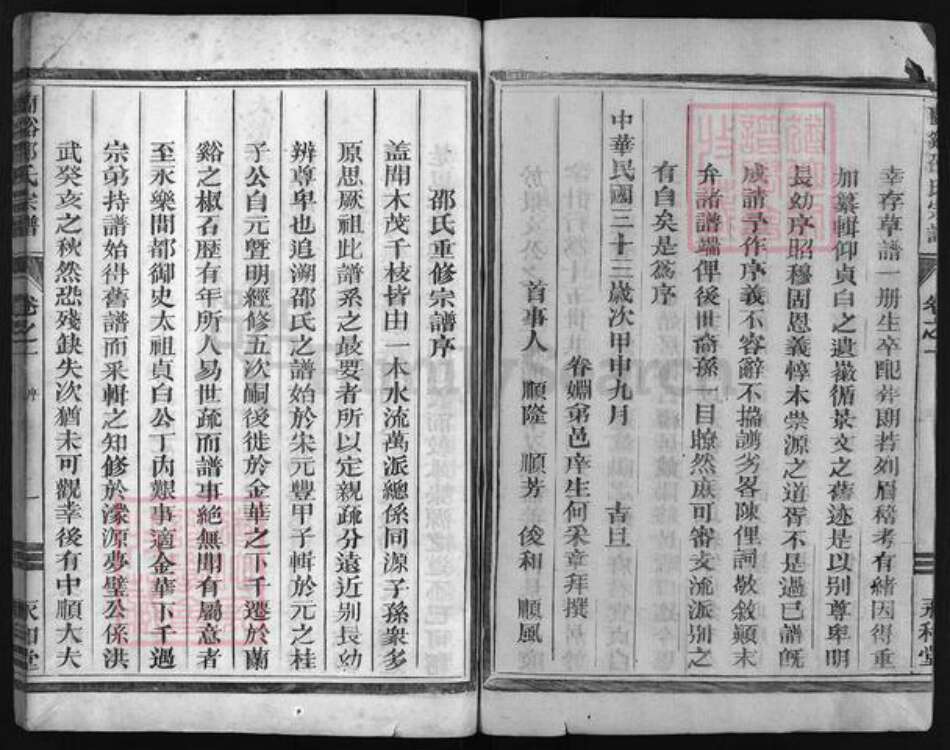 幸存草譜一册生卒配葬朗若列眉稽考有緒因得重
加纂輯仰貞白之遺徽循景文之舊迹是以别尊卑明
長幼序昭穆固恩義惇本崇源之道胥不是過已譜旣
成請予作序義不容辭不揣譾劣畧陳俚詞敬敘顛末
弁諸譜端俾後世裔孫一目瞭然庶可審支流派别之
有自矣是爲序
中華民國三十三歲次甲申九月 吉旦
眷姻弟邑庠生何采章拜撰
首事人 順隆 順芳 俊和 順風
蘭谿邵氏宗譜 卷之一 永和堂
邵氏重修宗譜序
盖聞木茂千枝皆由一本水流萬派總係同源子孫衆多
原思厥祖此譜系之最要者所以定親疏分遠近别長幼
辨尊卑也追溯邵氏之譜始於宋元豐甲子輯於元之桂
子公自元暨明經修五次嗣後徙於金華之下千遷於蘭
谿之椒石歴有年所人易世疏而譜事絕無聞有屬意者
至永樂間都御史太祖貞白公丁内艱事適金華下千過
宗弟持譜始得舊譜而采輯之知修於濛源夢璧公係洪
武癸亥之秋然恐殘缺失次猶未可觀幸後有中順大夫
蘭谿邵氏宗譜 卷之一 序 一 永和堂